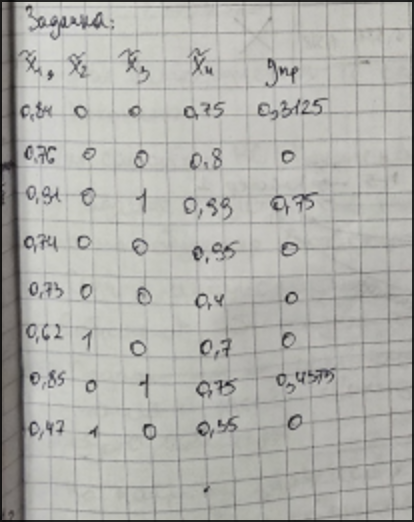 Задачка:
x̃1, x̃2 x̃3 x̃4 gпр
0,84 0 0 0,75 0,3125
0,76 0 0 0,8 0
0,91 0 1 0,99 0,75
0,74 0 0 0,95 0
0,73 0 0 0,4 0
0,62 1 0 0,7 0
0,85 0 1 0,75 0,4375
0,47 1 0 0,55 0